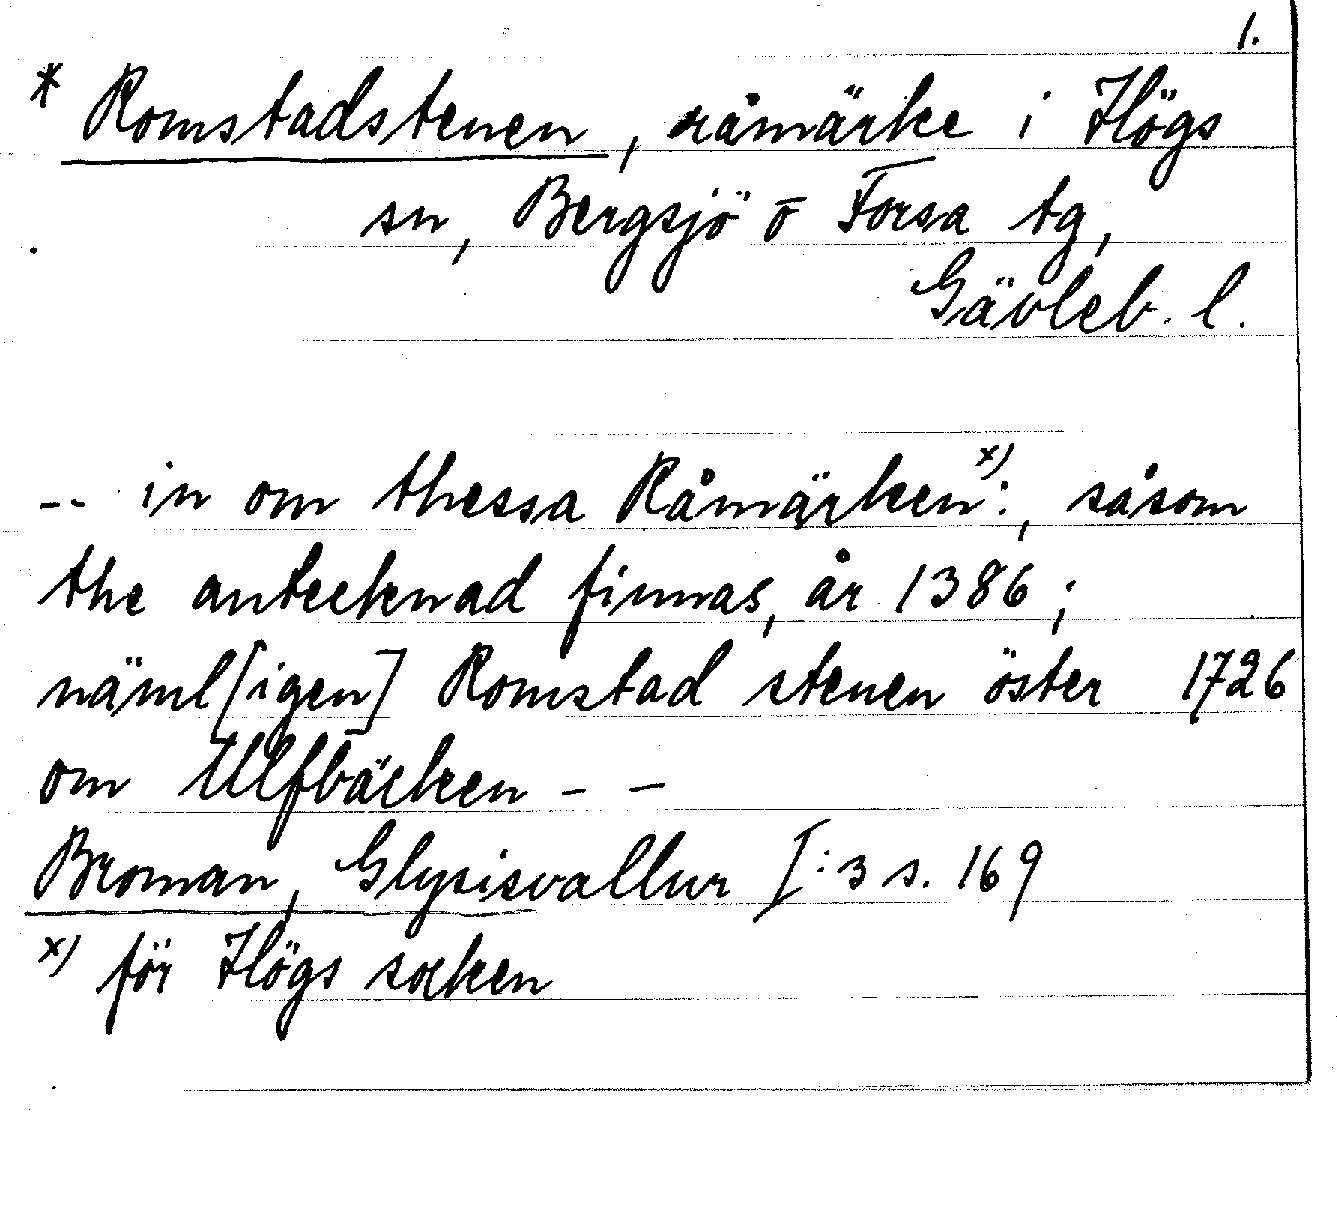 1.
* Romstadstenen, råmärke i Högs
sn, Bergsjö o Forsa tg,
Gävleb. l.
-- in om thessa Råmärken x):, såsom
the antecknad finnas, år 1386;
näml[igen] Romstad stenen öster 1726
om Ulfbäcken - -
Broman, Glysisvallur I:3 s. 169
x) för Högs socken